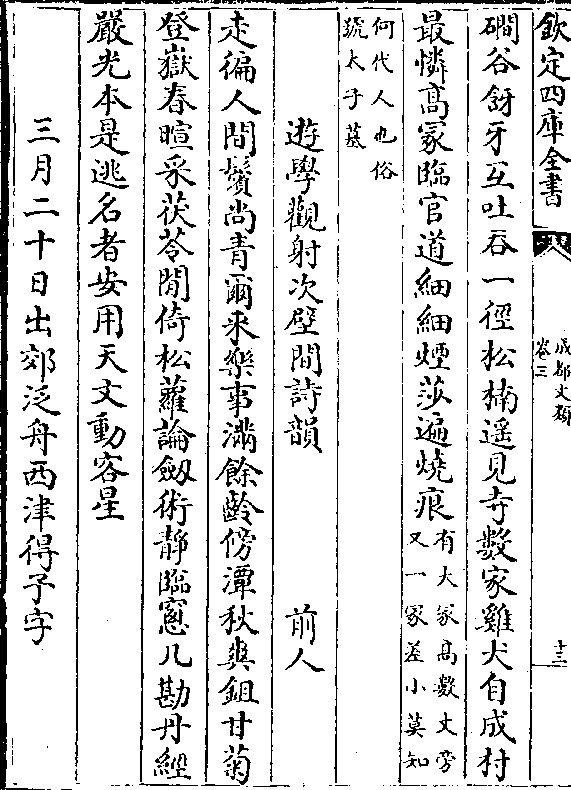 欽定四庫全書
成都文類
卷三
十三
磵谷谺牙互吐吞一徑松楠遥見寺數家雞犬自成村
最憐髙冢臨官道細細煙莎遍燒痕有大冢髙數丈旁
又一冢差小莫知
何代人也俗
號太子墓
遊學觀射次壁間詩韻
前人
走徧人間鬢尚青爾來樂事滿餘齡傍潭秋爽鉏甘菊
登嶽春暄采茯苓閒倚松蘿論劒術靜臨窻几勘丹經
嚴光本是逃名者安用天文動客星
三月二十日出郊泛舟西津得予字